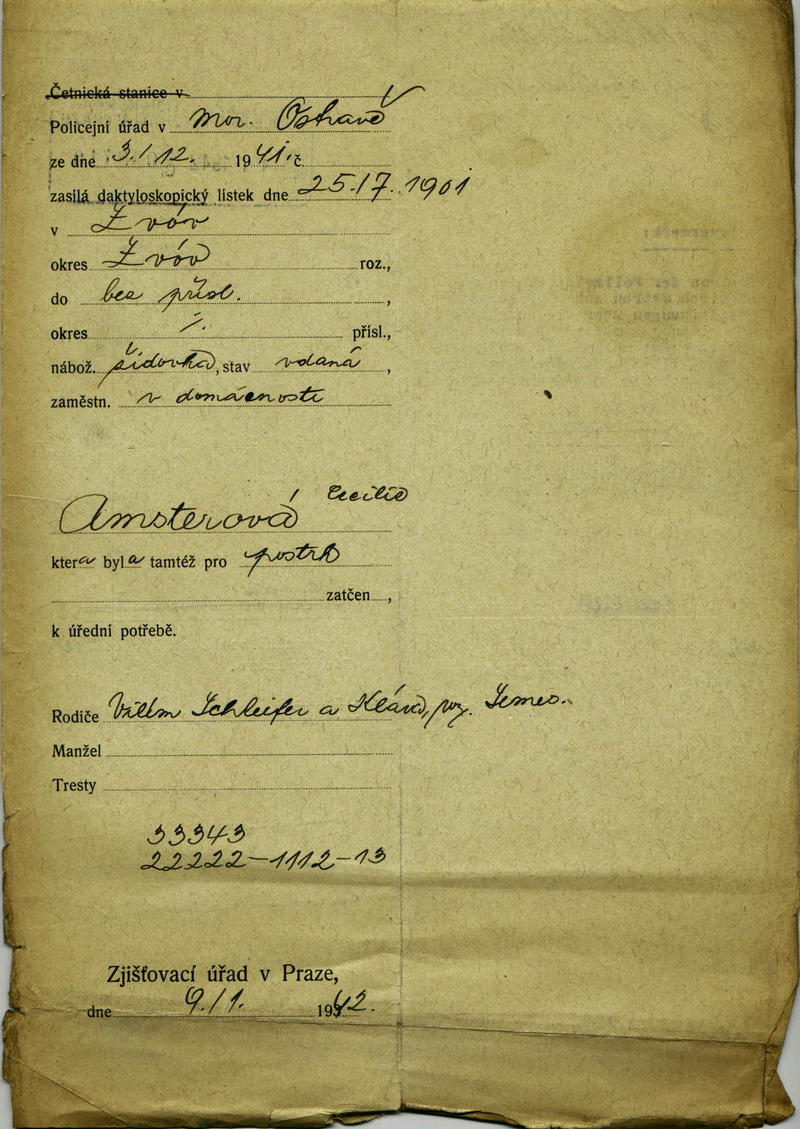 Četnická stanice v
Policejní úřad v Mor. Ostravě
ze dne 3./12. 1941. č.
zasílá daktyloskopický lístek dne 25./7. 1901
v Lvóv
okres Lvóv roz.,
do bez přísl.,
okres /. přísl.,
nábož. židovka, stav vdaná,
zaměstn. v domácnosti
Cecilie
Amsterová
která byla tamtéž pro postrk
zatčen,
k úřední potřebě.
Rodiče Vilém Schleifer a Klára, roz.
Manžel
Tresty
33343
22222-1112-13
Zjišťovací úřad v Praze,
dne 9./1. 1942.